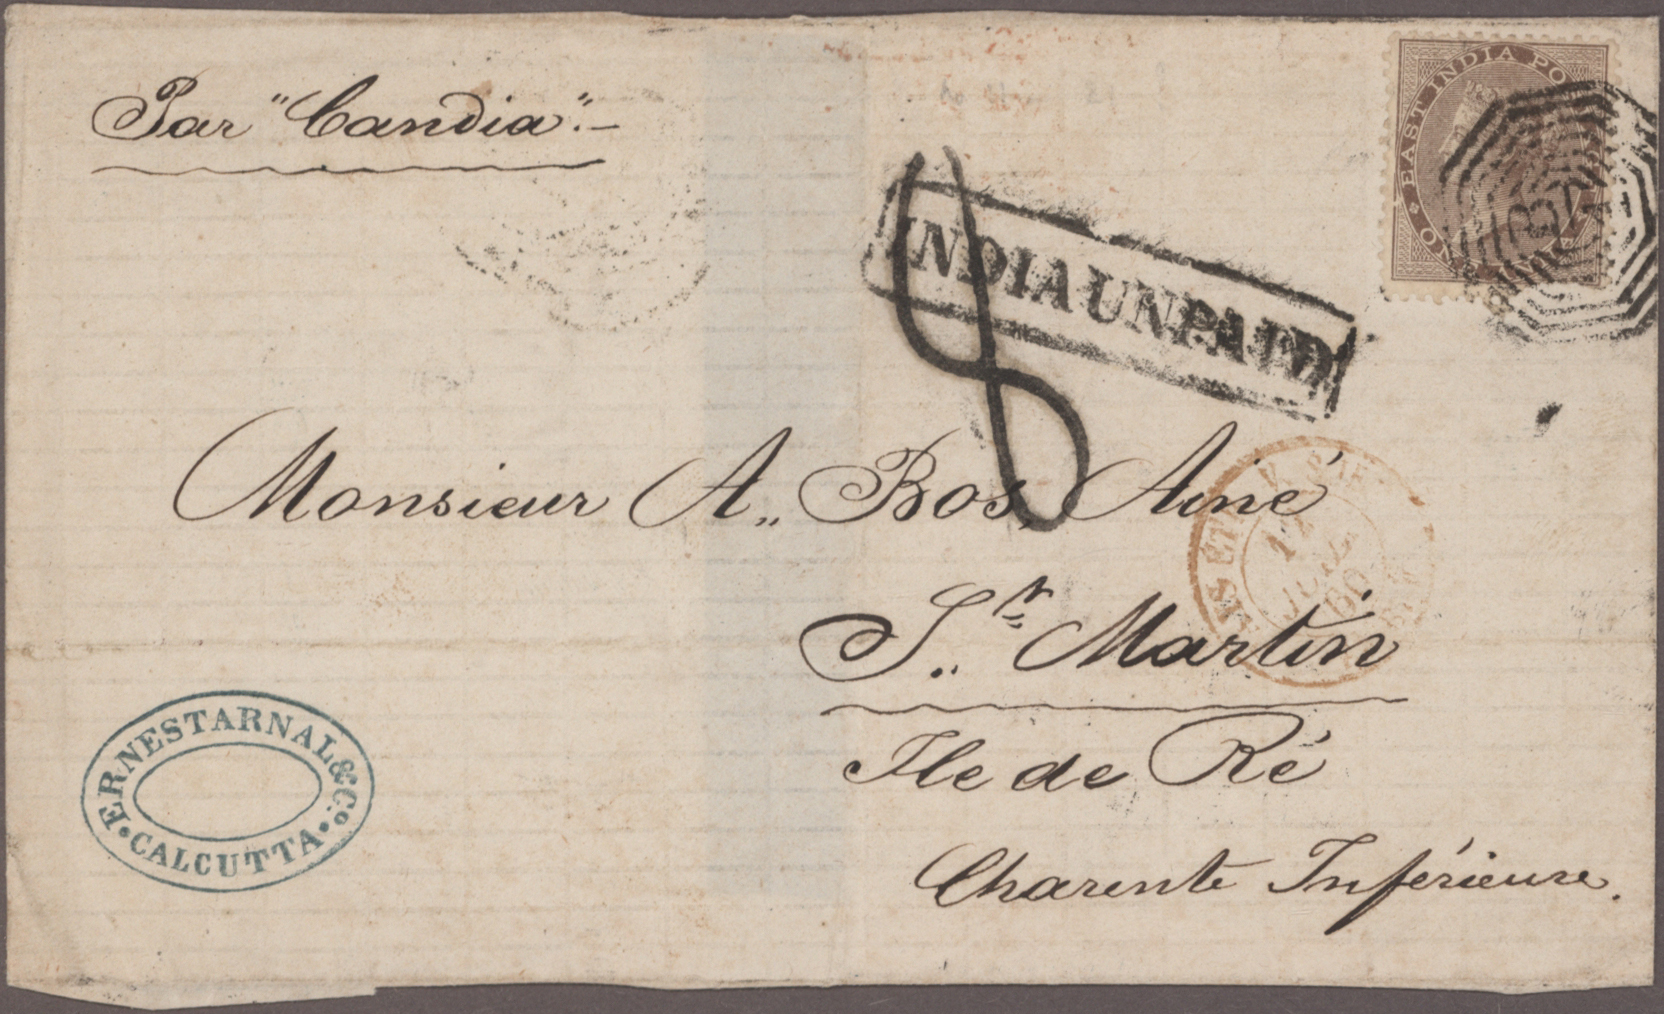 Par "Candia".–
EAST INDIA PO
ON
INDIA UNPAID
8
Monsieur A,, Bos, Ainé
St. Martin
Ile de Ré
Charente Inférieure.
17
JUIL
60
ERNEST ARNAL & Co.
• CALCUTTA •